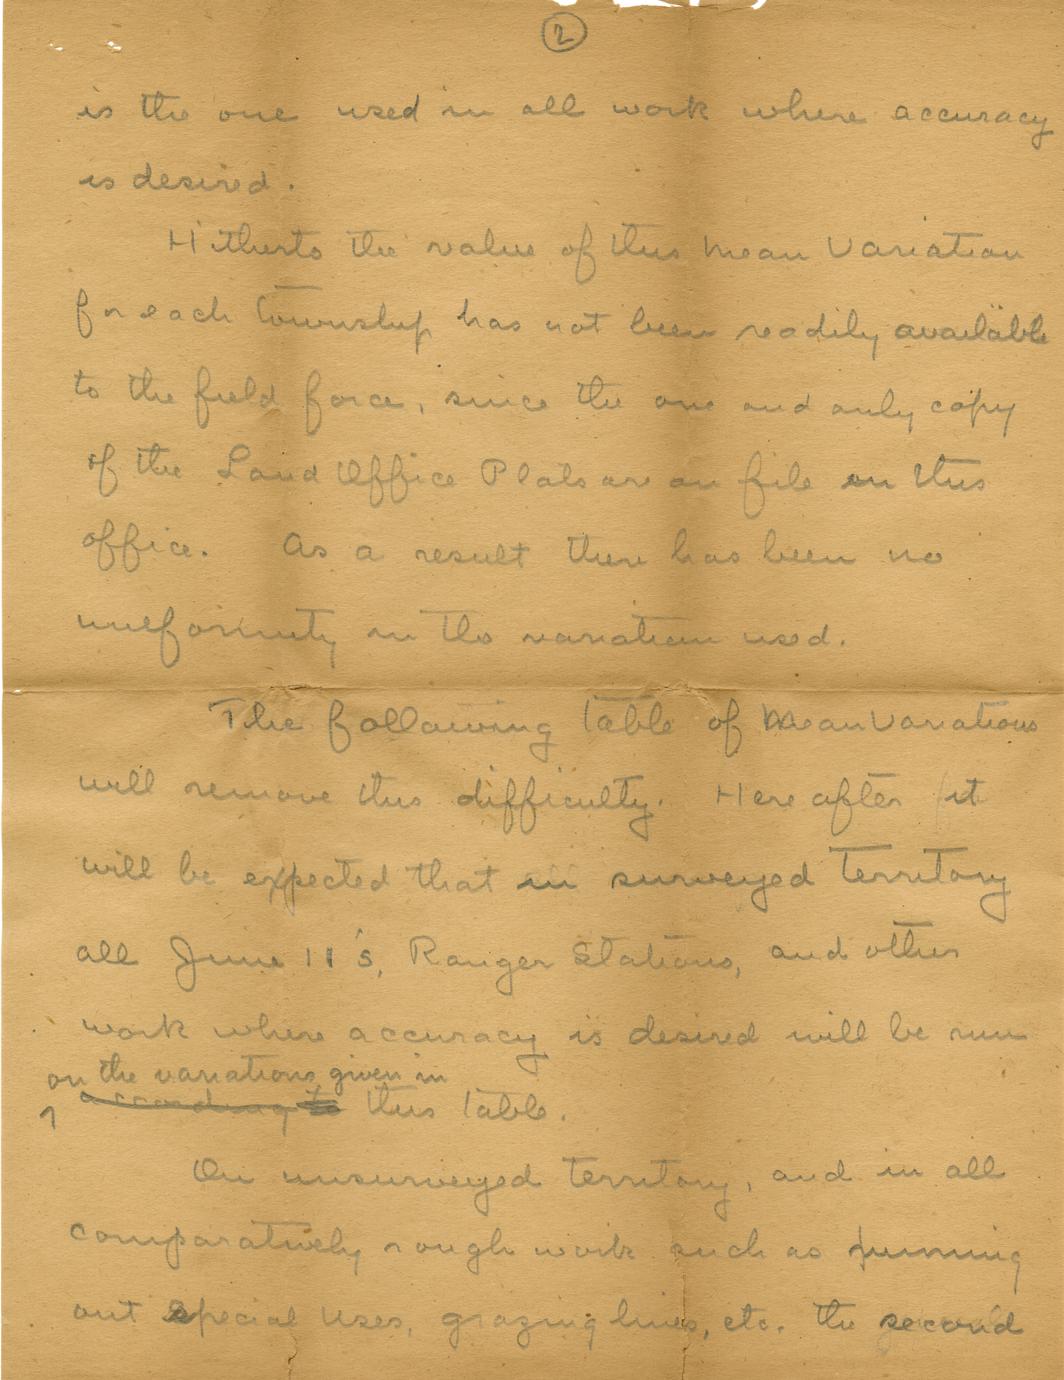 2
is the one used in all work where accuracy
is desired.
Hitherto the value of this Mean Variation
for each township has not been readily available
to the field force, since the one and only copy
of the Land Office Plats are on file in this
office. As a result there has been no
uniformity in the variation used.
The following table of Mean Variations
will remove this difficulty. Here after it
will be expected that in surveyed territory
all June 11's, Ranger Stations, and other
work where accuracy is desired will be run
on the variations given in
according to this table.
On unsurveyed territory, and in all
comparatively rough work such as running
out Special Uses, grazing lines, etc. the second